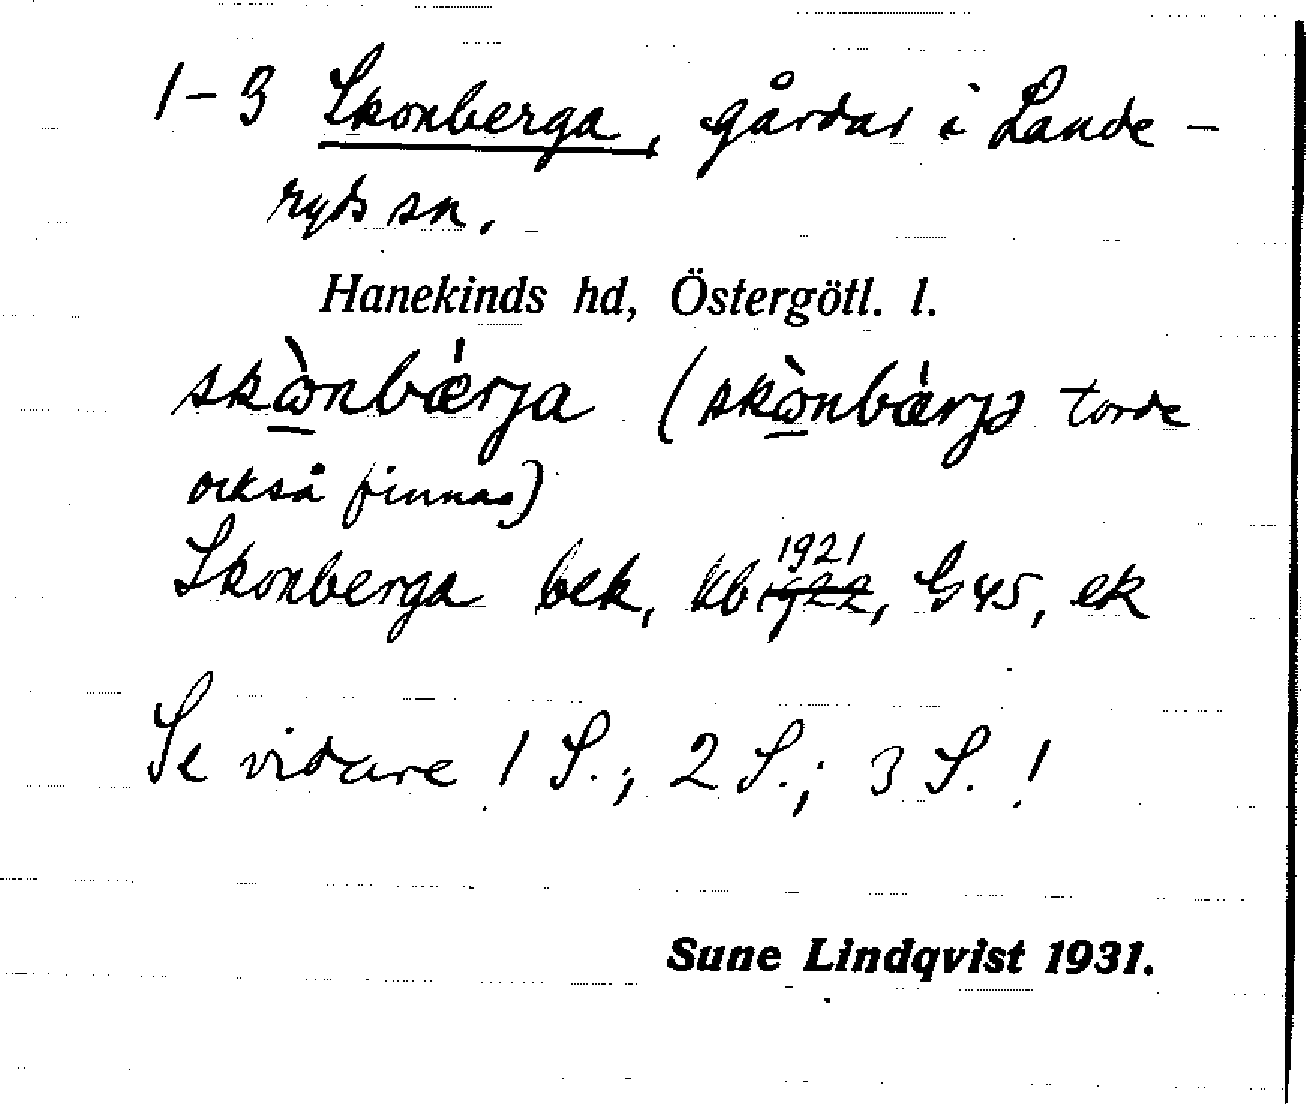 1-3 Skonberga, gårdar i Lande-
ryds sn.
Hanekinds hd, Östergötl. l.
skò̱nbæ̍rja (skò̱nbæ̍rjə torde
också finnas)
Skonberga bek, kb 1921 1922, G45, ek
Se vidare 1 S.; 2 S.; 3 S.!
Sune Lindqvist 1931.